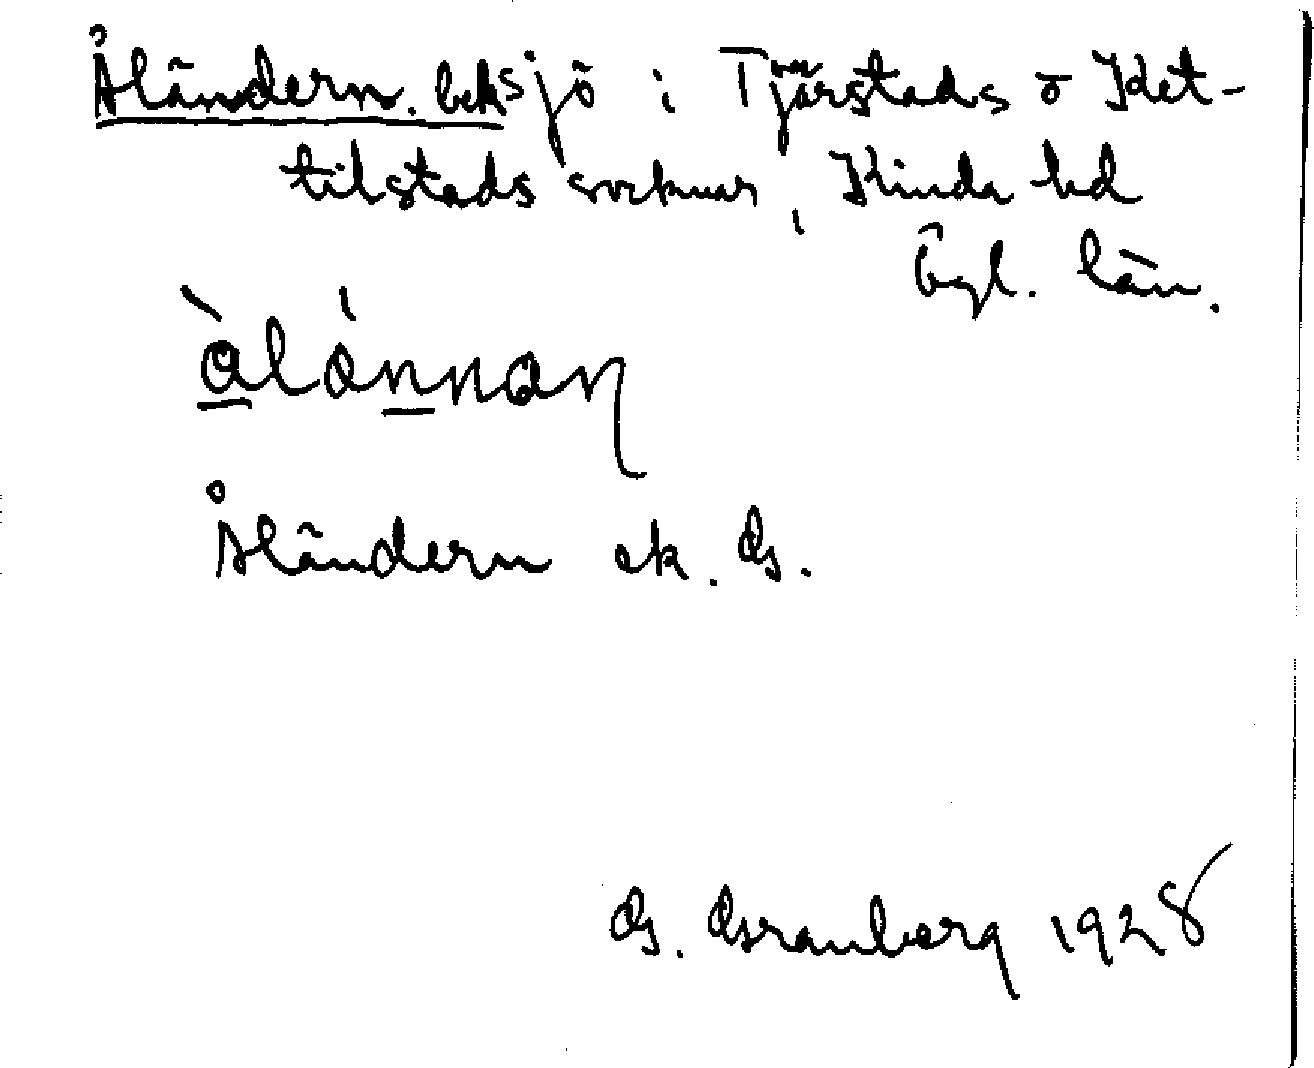 Åländern. beks sjö i Tjärstads o Ket-
tilstads socknar, Kinda hd
Ögl. län.
àlánnan
Åländern ek. G.
G. Granberg 1928